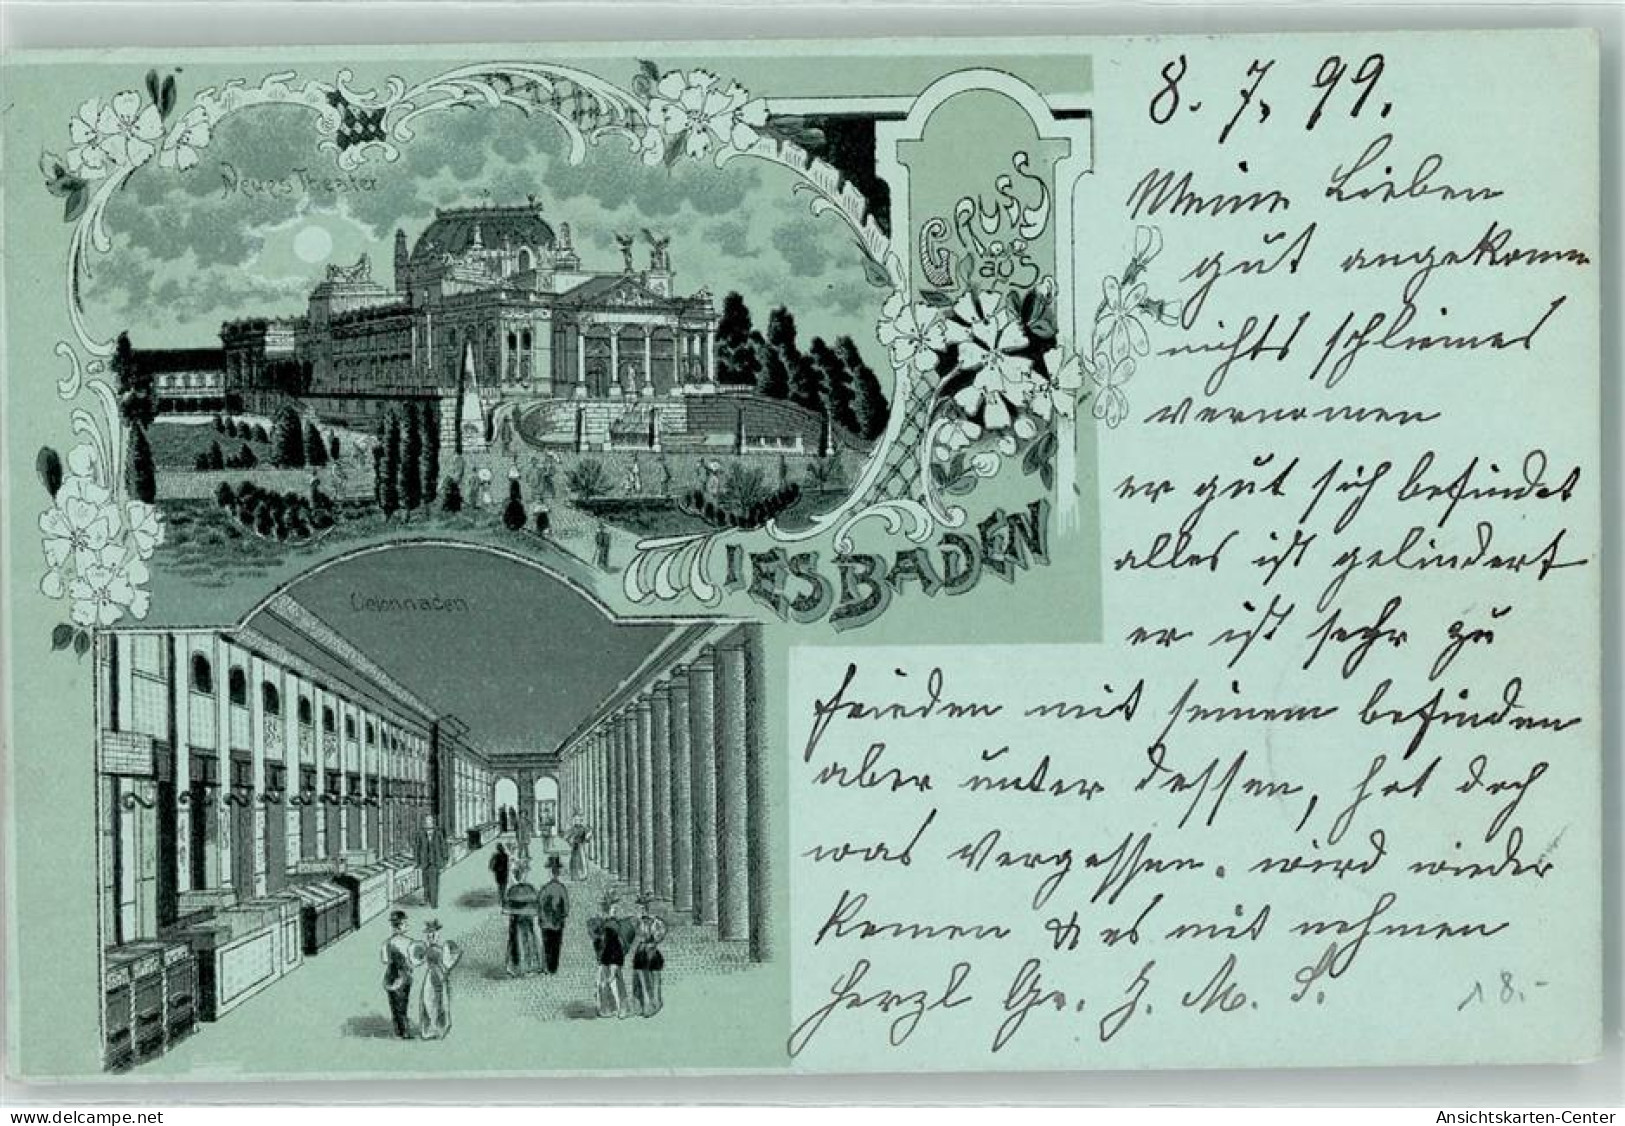 Neues Theater
GRUSS
aus
WIESBADEN
Colonnaden
8. 7. 99.
Meine Lieben
gut angekomm
nichts schlimmes
vernomen
er gut sich befindet
alles ist gelindert
er ist sehr zu
frieden mit seinem befinden
aber unter dessen, hat doch
was vergessen. wird wieder
komen & es mit nehmen
Herzl Gr. J. M. S.
18.-
delcampe.net
Ansichtskarten-Center